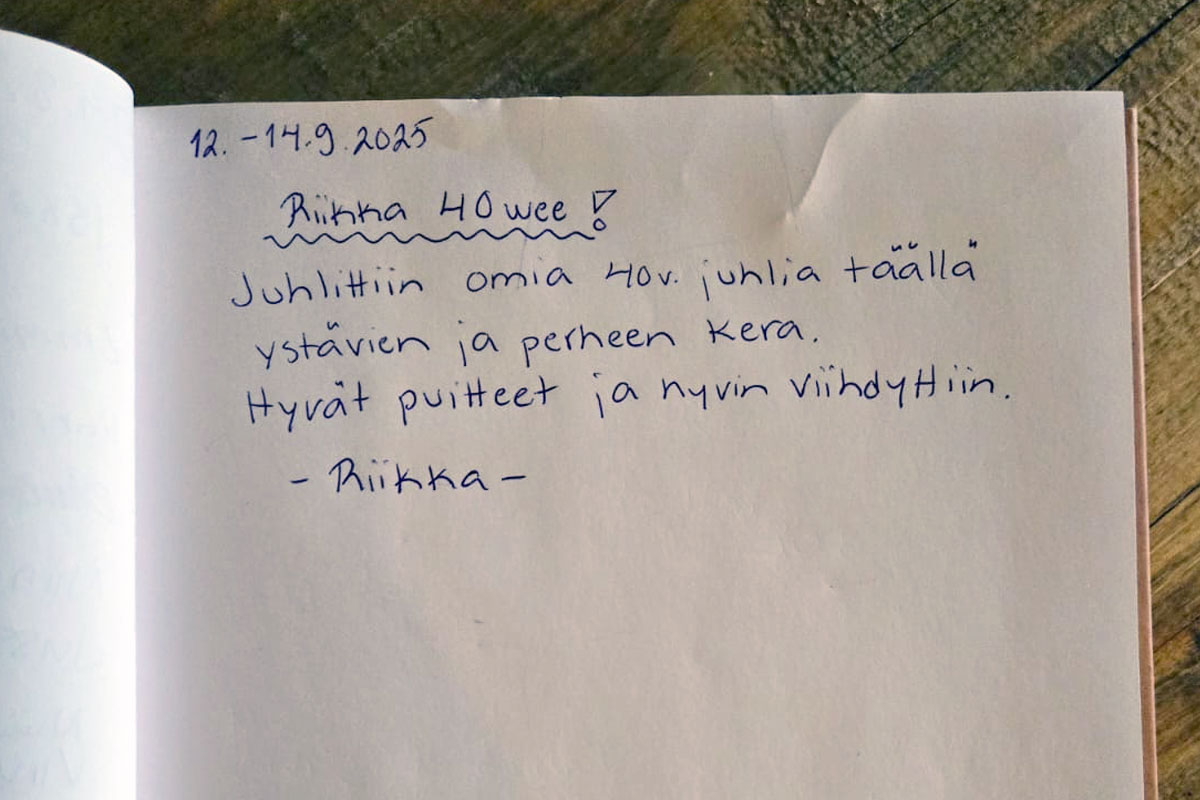 12.-14.9.2025
Riikka 40wee!
Juhlittiin omia 40v. juhlia täällä
ystävien ja perheen kera.
Hyvät puitteet ja hyvin viihdyttiin.
- Riikka -